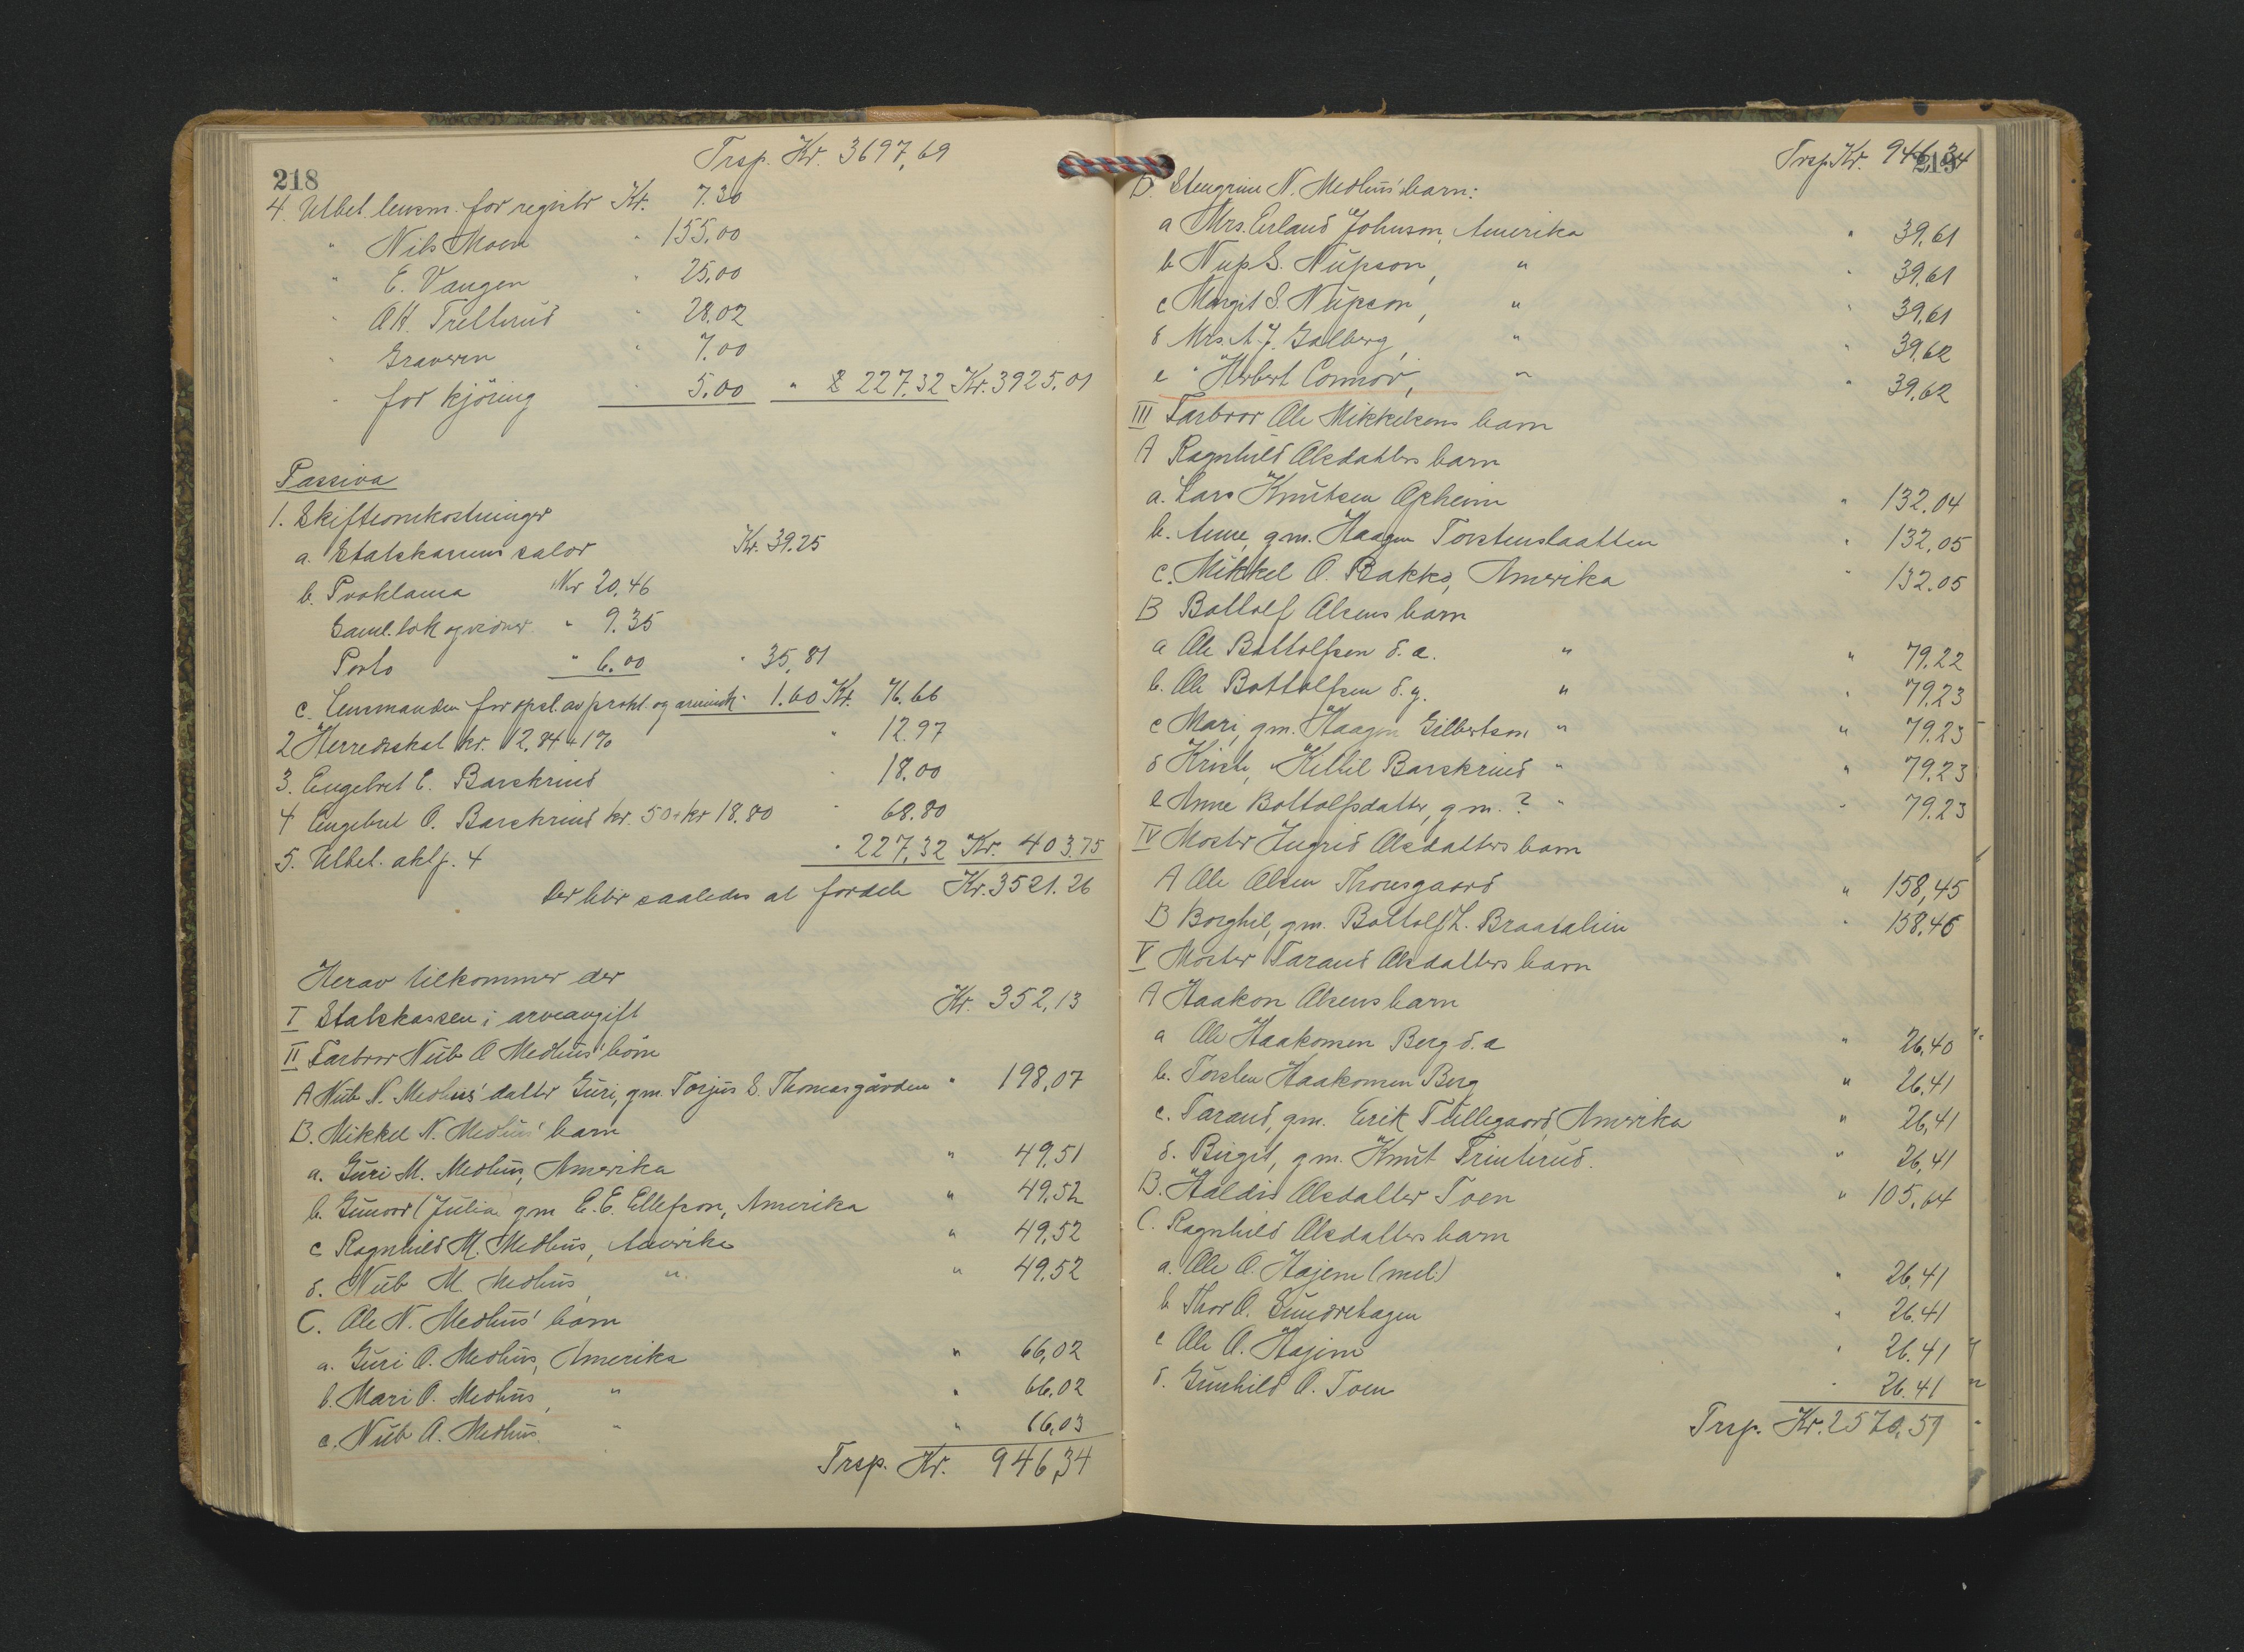 Trsp. Kr. 3697,69
218
4. Utbet. lensm. for registr Kr. 7.30
" Nils Moen " 155.00
" E. Vangen " 25.00
" O.H. Trellerud " 28.02
" Graveren " 7.00
" for kjöring " 5.00 " 227.32 Kr. 3925.01
Passiva
1. Skifteomkostninger
a. Statskassens salær Kr. 39.25
b. Proklama Kr 20.46
Saml. lok og vidner " 9.35
Porto " 6.00 " 35,81
c. Lensmanden for opsl. av prokl. og 1.60 Kr. 76.66
2 Herredsskat kr. 12.84 + 1% " 12.97
3. Engebret E. Barskrind " 18.00
4 Engebret O. Barskrind kr. 50 + kr 18.80 " 68.80
5. Utbet. akt p. 4 " 227,32 Kr. 403.75
Der blir saaledes at fordele Kr. 3521.26
Herav tilkommer der
I Statskassen i arveavgift Kr. 352,13
II Farbror Nub O Medhus' börn
A Nub N. Medhus' datter Guri, gm. Torjus S. Thomasgården " 198,07
B. Mikkel N. Medhus' barn
a. Guri M. Medhus, Amerika " 49,51
b. Gunvor (Julia gm E. E. Ellefson, Amerika " 49,52
c Ragnhild M. Medhus, Amerika " 49,52
d. Nub M. Medhus, " " 49,52
C. Ole N. Medhus' barn
a. Guri O. Medhus, Amerika " 66,02
b. Mari O. Medhus, " " 66,02
c. Nub O. Medhus. " " 66,03
Trsp. Kr. 946,34
Trsp. Kr. 946,34
219
D. Stengrim N. Medhus' barn:
a Mrs. Erland Johnson, Amerika " 39,61
b Nup S. Nupson, " " 39,61
c Margit S. Nupson, " " 39,61
d Mrs. A. J. Golberg, " " 39,62
e " Herbert Connor, " " 39,62
III Farbror Ole Mikkelsens barn
A Ragnhild Olsdatters barn
a. Lars Knutsen Opheim " 132.04
b. Anne, gm. Haagen Torstenslaatten " 132,05
c. Mikkel O. Bakko, Amerika " 132.05
B Bottolf Olsens barn
a Ole Bottolfsen d.e. " " 79.22
b. Ole Bottolfsen d.y. " " 79,23
c Mari, gm. Haagen Gilbertson " " 79,23
d Kristi, " Kittil Barskrind " " 79,23
e Anne Bottolfsdatter, gm. ? " " 79.23
IV Moster Ingrid Olsdatters barn
A Ole Olsen Thonsgaard " 158,45
B Borghil, gm. Bottolf L. Braatalien " 158.46
V Moster Tarand Olsdatters barn
A Haakon Olsens barn
a Ole Haakonsen Berg d.e " 26,40
b. Torsten Haakonsen Berg " 26,41
c. Tarand, gm. Erik Tollegaard, Amerika " 26,41
d. Birgit, gm. Knut Trinterud. " 26,41
B. Haldis Olsdatter Toen " 105,64
C. Ragnhild Olsdatters barn
a. Ole O. Hajem (mel.) " 26,41
b Thor O. Sundrehagen " 26.41
c Ole O. Hajem " 26.41
d. Gunhild O. Toen " 26.41
Trsp. Kr. 2570,51